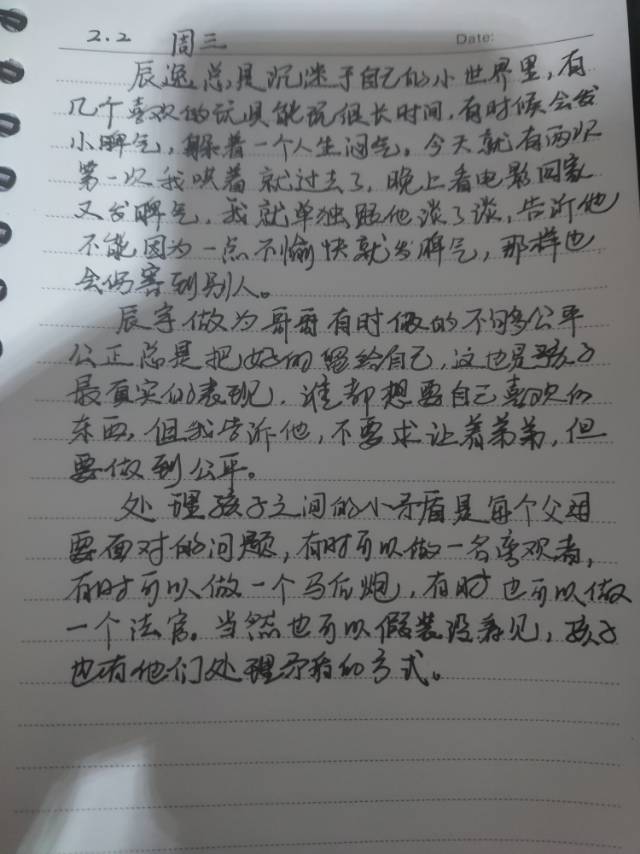 2.2 周三 Date:
辰逸总是沉迷于自己的小世界里，有
几个喜欢的玩具能玩很长时间，有时候会发
小脾气，躲着一个人生闷气。今天就有两次
第一次我哄着就过去了，晚上看电影回家
又发脾气，我就单独跟他谈了谈，告诉他
不能因为一点不愉快就发脾气，那样也
会伤害到别人。
辰宇做为哥哥有时做的不够公平
公正总是把好的留给自己，这也是孩子
最真实的表现，谁都想要自己喜欢的
东西，但我告诉他，不要求让着弟弟，但
要做到公平。
处理孩子之间的小矛盾是每个父母
要面对的问题，有时可以做一名旁观者，
有时可以做一个马后炮，有时也可以做
一个法官。当然也可以假装没看见，孩子
也有他们处理矛盾的方式。